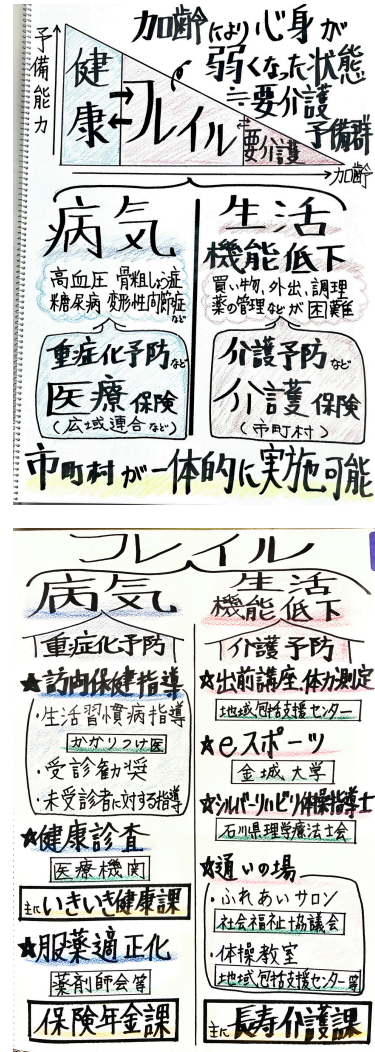 加齢により心身が
弱くなった状態
≒要介護
予備群
予備能力
健康
フレイル
要介護
加齢
病気
高血圧 骨粗しょう症
糖尿病 変形性関節症
など
重症化予防など
医療保険
(広域連合など)
生活
機能低下
買い物、外出、調理
薬の管理などが困難
介護予防など
介護保険
(市町村)
市町村が一体的に実施可能
フレイル
病気
重症化予防
★訪問保健指導
・生活習慣病指導
かかりつけ医
・受診勧奨
・未受診者に対する指導
★健康診査
医療機関
主にいきいき健康課
★服薬適正化
薬剤師会等
保険年金課
生活
機能低下
介護予防
★出前講座、体力測定
地域包括支援センター
★eスポーツ
金城大学
★シルバーリハビリ体操指導士
石川県理学療法士会
★通いの場
・ふれあいサロン
社会福祉協議会
・体操教室
地域包括支援センター等
主に長寿介護課